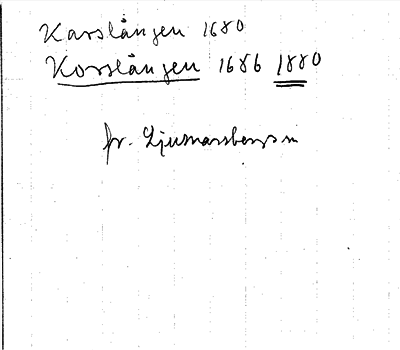 Karslången 1680
Korslången 1686 1880
fr. Ljusnarsbergs sn